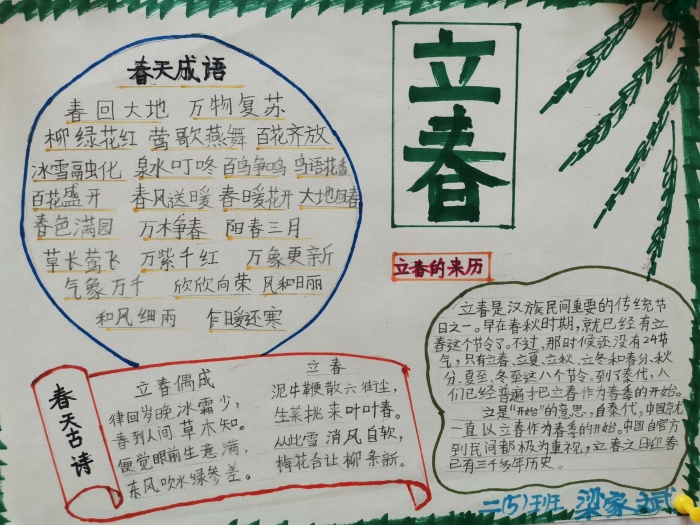 春天成语
春回大地 万物复苏
柳绿花红 莺歌燕舞 百花齐放
冰雪融化 泉水叮咚 百鸟争鸣 鸟语花香
百花盛开 春风送暖 春暖花开 大地回春
春色满园 万木争春 阳春三月
草长莺飞 万紫千红 万象更新
气象万千 欣欣向荣 风和日丽
和风细雨 乍暖还寒
立春
立春的来历
立春是汉族民间重要的传统节
日之一。早在春秋时期,就已经有立
春这个节令了。不过,那时候还没有24节
气,只有立春、立夏、立秋、立冬和春分、秋
分、夏至、冬至这八个节令。到了秦代,人
们已经普遍才巴立春作为春季的开始。
立是“开始”的意思,自秦代,中国就
一直以立春作为春季的开始。中国自官方
到民间都极为重视,立春之日迎春
已有三千多年历史。
春天古诗
立春偶成
律回岁晚冰霜少,
春到人间草木知。
便觉眼前生意满,
东风吹水绿参差。
立春
泥牛鞭散六街尘,
生菜挑来叶叶春。
从此雪消风自软,
梅花合让柳条新。
二(5)班 梁家斌